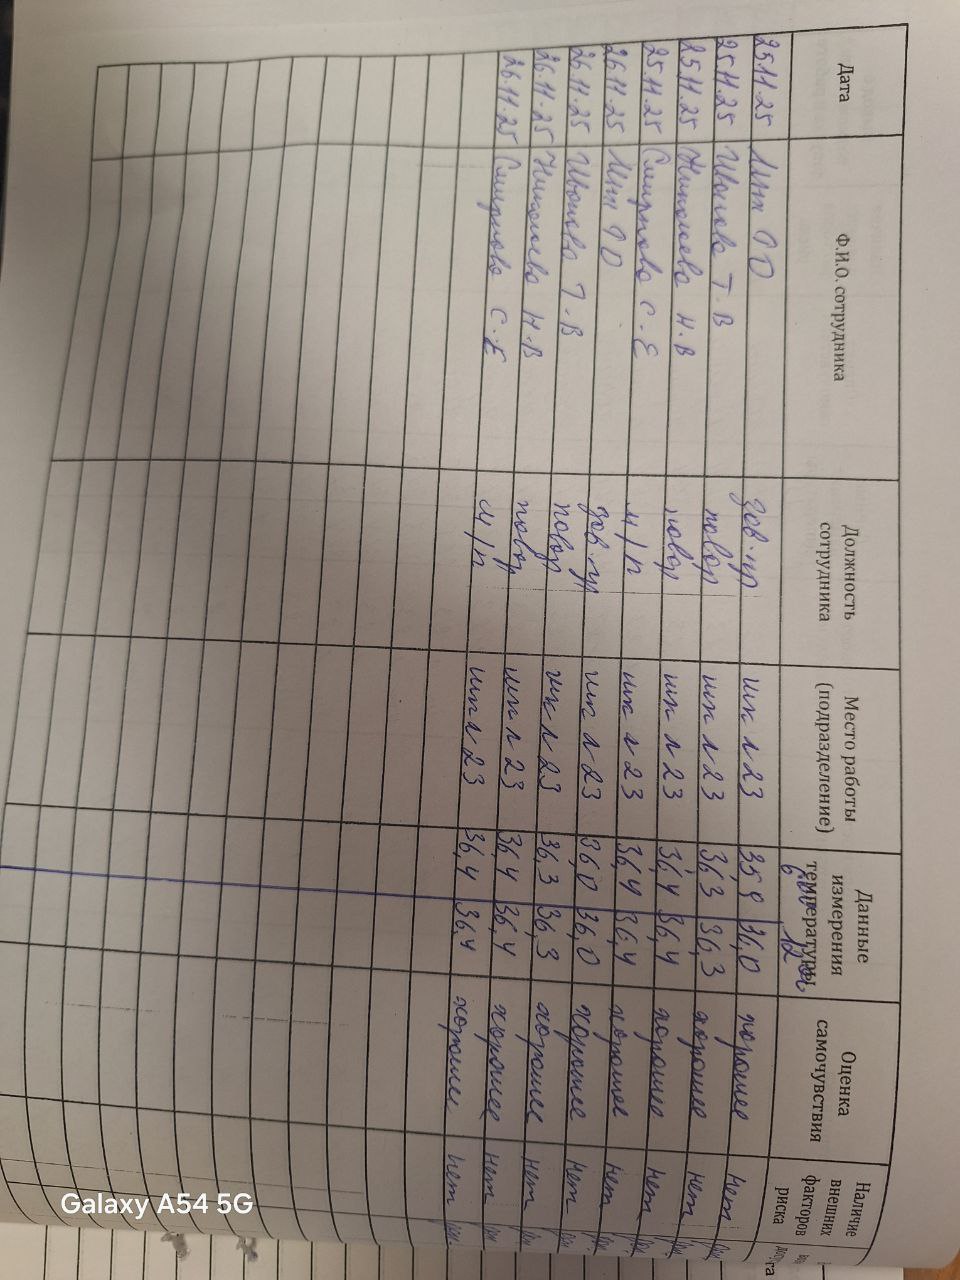 Дата Ф.И.О. сотрудника Должность сотрудника Место работы (подразделение) Данные измерения температуры Оценка самочувствия Наличие внешних факторов риска
6:00 12:00
25.11.25 зав.пр шк л 23 35,9 36,0 хорошее нет
25.11.25 Иванова Т.В повар шк л 23 36,3 36,3 хорошее нет
25.11.25 Николаева Н.В повар шк л 23 36,4 36,4 хорошее нет
25.11.25 Смирнова С.Е м/п шк л 23 36,4 36,4 хорошее нет
26.11.25 зав.пр шк л 23 36,0 36,0 хорошее нет
26.11.25 Иванова Т.В повар шк л 23 36,3 36,3 хорошее нет
26.11.25 Николаева Н.В повар шк л 23 36,4 36,4 хорошее нет
26.11.25 Смирнова С.Е м/п шк л 23 36,4 36,4 хорошее нет
Galaxy A54 5G